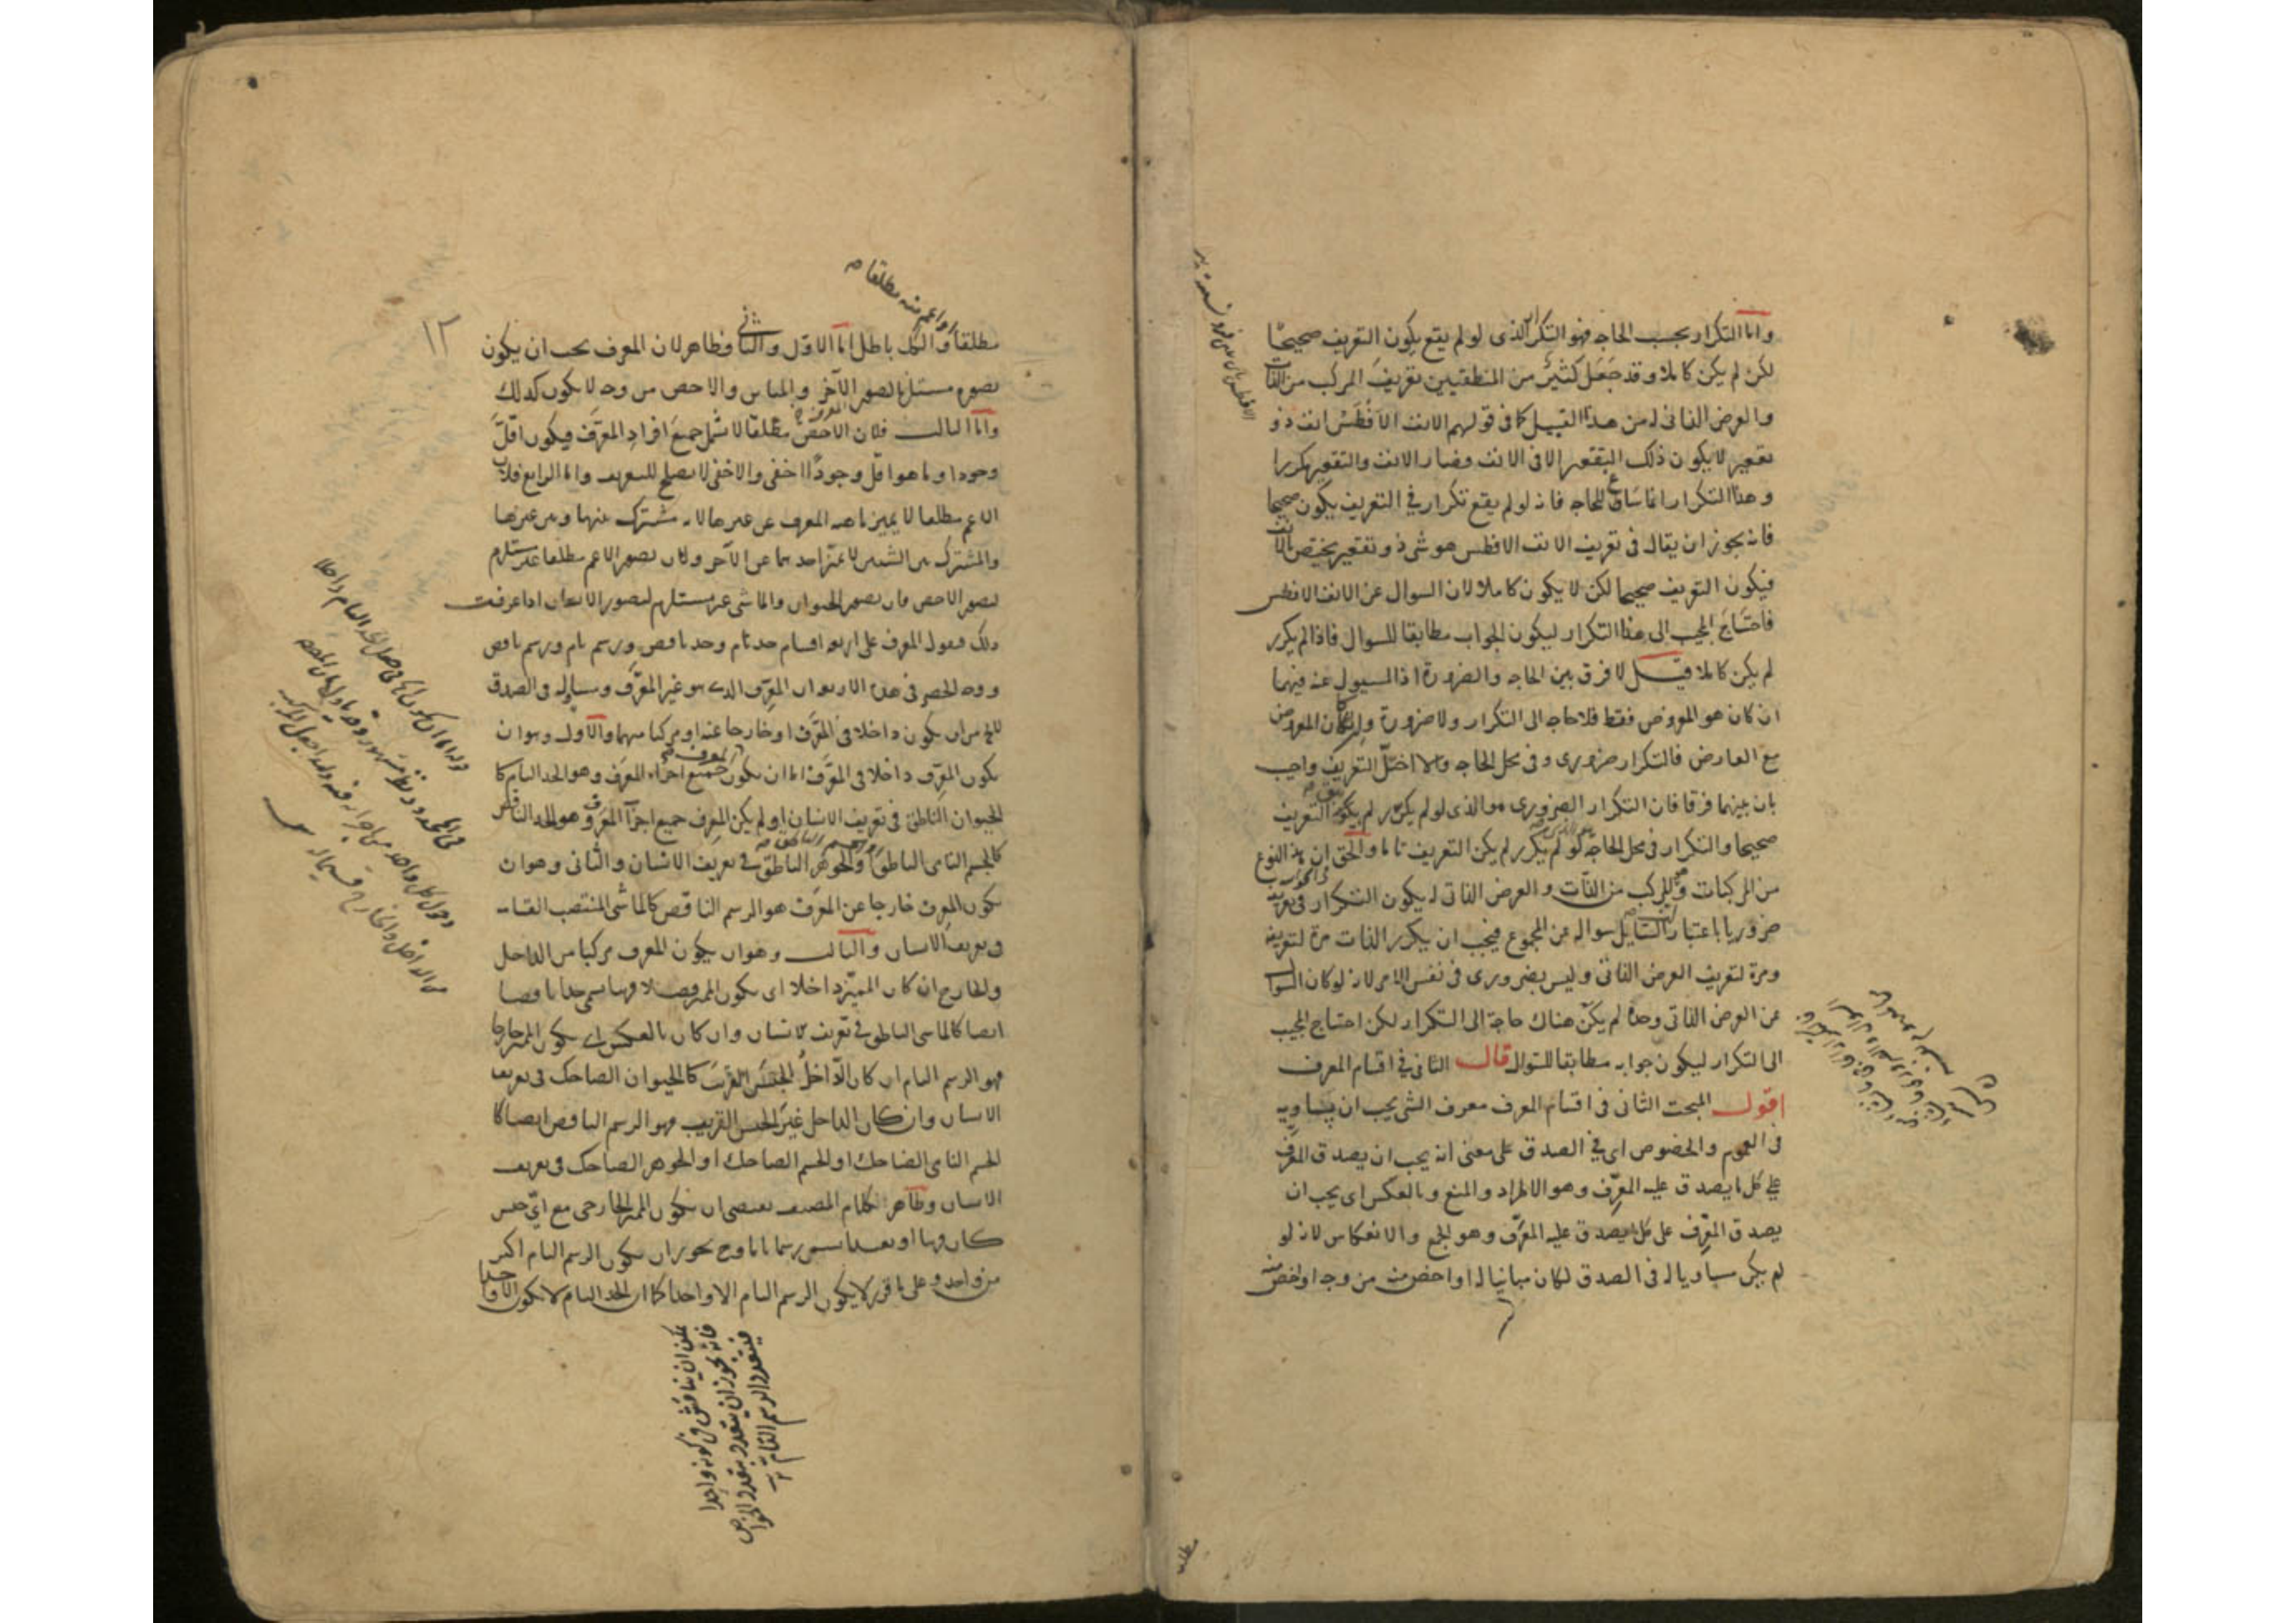 واما التكرار بحسب الحاجه فهو التكرار الذى لو لم يقع يكون التعريف صحيحا
لكن لم يكن كاملا وقد جعل كثير من المنطقيين تعريف المركب من الذات
والعرض الذاتى له من هذا القبيل كما فى قولهم الانف الافطس انف ذو
تقعير لا يكون ذلك التقعير الا فى الانف وصار الانف والتقعير مكررا
وهذا التكرار انما ساغ للحاجه فانه لو لم يقع تكرار فى التعريف يكون صحيحا
فانه يجوز ان يقال فى تعريف الانف الافطس هو شى ذو تقعير يختص بالانف
فيكون التعريف صحيحا لكن لا يكون كاملا لان السوال عن الانف الافطس
فاحتاج المجيب الى هذا التكرار ليكون الجواب مطابقا للسوال فاذا لم يكرر
لم يكن كاملا قيل لا فرق بين الحاجه والضرورة اذ المسيول عنه فيهما
ان كان هو المعروض فقط فلا حاجه الى التكرار ولا ضرورة وان كان المعروض
مع العارض فالتكرار ضرورى وفى محل الحاجه والا اختل التعريف واجيب
بان بينهما فرقا فان التكرار الضرورى هو الذى لو لم يكرر لم يكن التعريف
صحيحا والتكرار فى محل الحاجة لو لم يكرر لم يكن التعريف تاما والحق ان هذا النوع
من المركبات وهو المركب من الذات والعرض الذاتى له يكون التكرار فى تعريفه
ضروريا باعتبار ان السايل سواله عن المجموع فيجب ان يكرر الذات مرة لتعريفه
ومرة لتعريف العرض الذاتى وليس بضرورى فى نفس الامر لانه لو كان السوال
عن العرض الذاتى وحده لم يكن هناك حاجة الى التكرار لكن احتاج المجيب
الى التكرار ليكون جوابه مطابقا للسوال قال الثانى فى اقسام المعرف
اقول المبحث الثانى فى اقسام المعرف معرف الشى يجب ان يساويه
فى العموم والخصوص اى فى الصدق على معنى انه يجب ان يصدق المعرف
على كل ما يصدق عليه المعرف وهو الاطراد والمنع وبالعكس اى يجب ان
يصدق المعرف على كل ما يصدق عليه المعرف وهو الجمع والانعكاس لانه لو
لم يكن مساويا له فى الصدق لكان مباينا له او اخص منه من وجه او اخص منه
١٢
او اعم منه مطلقا
مطلقا والكل باطل اما الاول والثانى فظاهر لان المعرف يجب ان يكون
تصوره مستلزما لتصور الآخر والمباين والاخص من وجه لا يكون كذلك
واما الثالث فلان الاخص مطلقا لا يشمل جميع افراد المعرف فيكون اقل
وجودا وما هو اقل وجودا اخفى والاخفى لا يصلح للتعريف واما الرابع فلان
الاعم مطلقا لا يميز ماهيه المعرف عن غيرها لانه مشترك بينها وبين غيرها
والمشترك بين الشيين لا يميز احدهما عن الآخر ولان تصور الاعم مطلقا غير مستلزم
لتصور الاخص فان تصور الحيوان والماشى غير مستلزم لتصور الانسان اذا عرفت
ذلك فنقول المعرف على اربعه اقسام حد تام وحد ناقص ورسم تام ورسم ناقص
ووجه الحصر فى هذه الاربعه ان المعرف الذى هو غير المعرف ومساو له فى الصدق
لا يخ من ان يكون داخلا فى المعرف او خارجا عنه او مركبا منهما والاول وهو ان
يكون المعرف داخلا فى المعرف اما ان يكون جميع اجزاء المعرف وهو الحد التام كا
لحيوان الناطق فى تعريف الانسان او لم يكن المعرف جميع اجزآ المعرف وهو الحد الناقص
كالجسم النامى الناطق والجوهر الناطق فى تعريف الانسان والثانى وهو ان
يكون المعرف خارجا عن المعرف هو الرسم الناقص كالماشى المنتصب القامه
فى تعريف الانسان والثالث وهو ان يكون المعرف مركبا من الداخل
والخارج ان كان المميز داخلا اى يكون المميز فصلا فهما يسمى حدا ناقصا
ايضا كالماشى الناطق فى تعريف الانسان وان كان بالعكس اى يكون المميز خارجا
فهو الرسم التام ان كان الداخل الجنس القريب كالحيوان الضاحك فى تعريف
الانسان وان كان الداخل غير الجنس القريب فهو الرسم الناقص ايضا كا
لجسم النامى الضاحك او الجسم الضاحك او الجوهر الضاحك فى تعريف
الانسان وظاهر كلام المصنف يقتضى ان يكون المميز الخارجى مع اى جنس
كان قريبا او بعيدا يسمى رسما تاما وح يجوز ان يكون الرسم التام اكثر
من واحد وعلى ما قرر لا يكون الرسم التام الا واحدا كما ان الحد التام لا يكون الا واحدا
يمكن ان يناقش فى كونه واحدا
فانه يجوز ان يتعدد بتعدد الخواص
فيتعدد الرسم التام